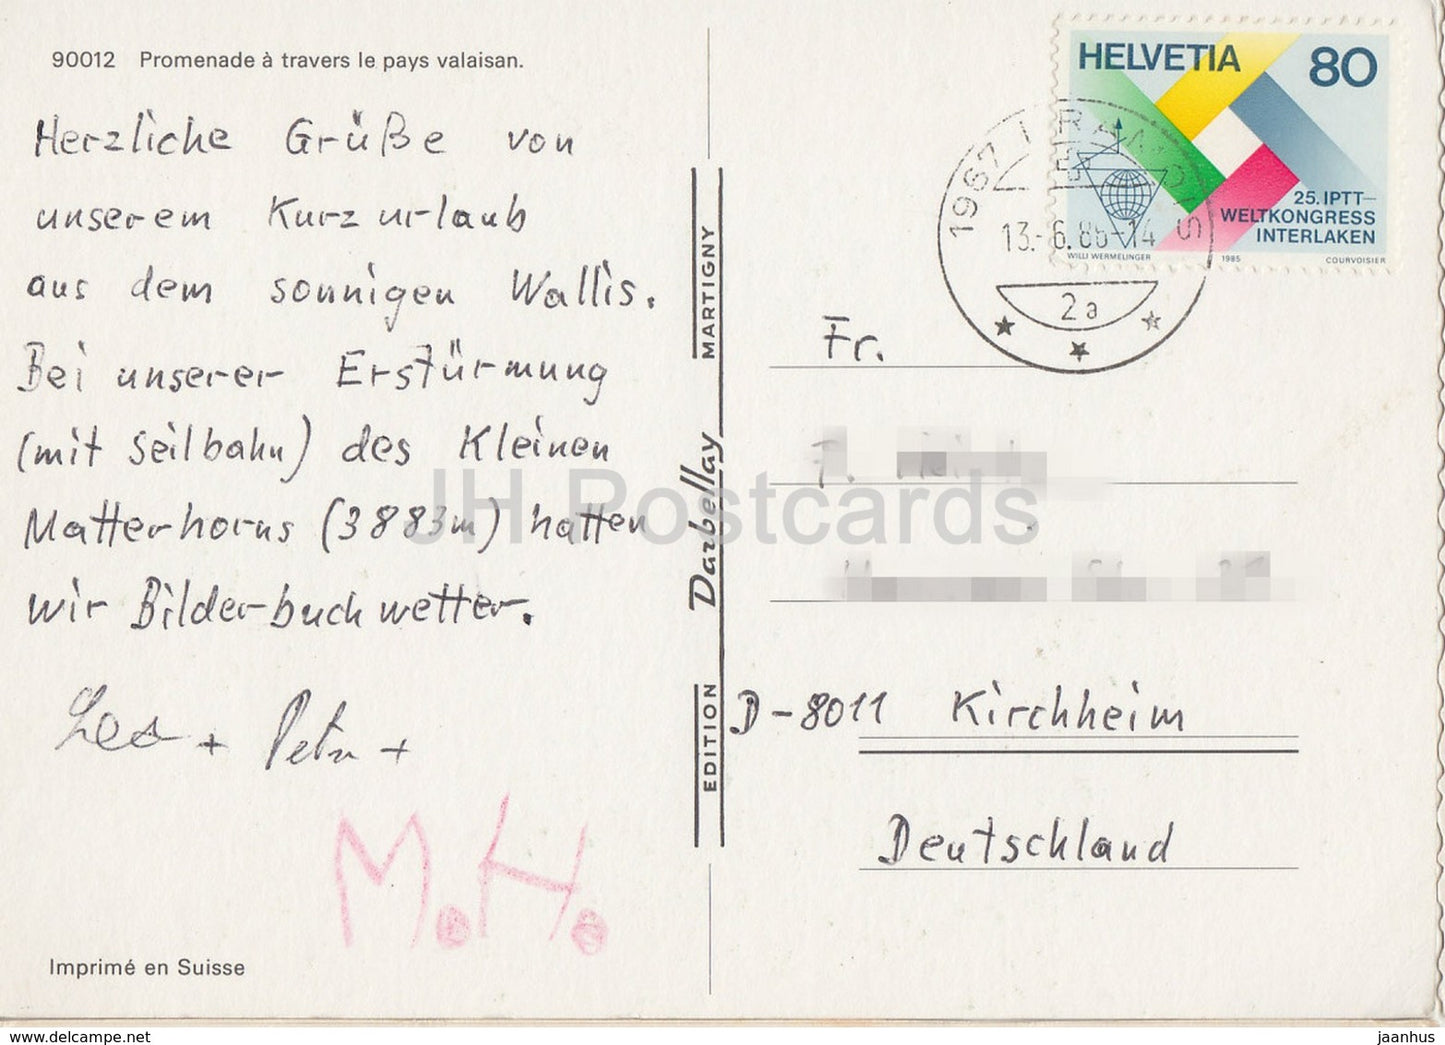 90012 Promenade à travers le pays valaisan.
Herzliche Grüße von
unserem Kurzurlaub
aus dem sonnigen Wallis.
Bei unserer Erstürmung
(mit Seilbahn) des Kleinen
Matterhorns (3883m) hatten
wir Bilderbuchwetter.
+ Petra +
M.H.
Imprimé en Suisse
EDITION Darbellay MARTIGNY
HELVETIA 80
25. IPTT-
WELTKONGRESS
INTERLAKEN
WILLI WERMELINGER 1985 COURVOISIER
1967
13.-6.86-14
2a
Fr.
D-8011 Kirchheim
Deutschland
JH Postcards
www.delcampe.net
jaanhus